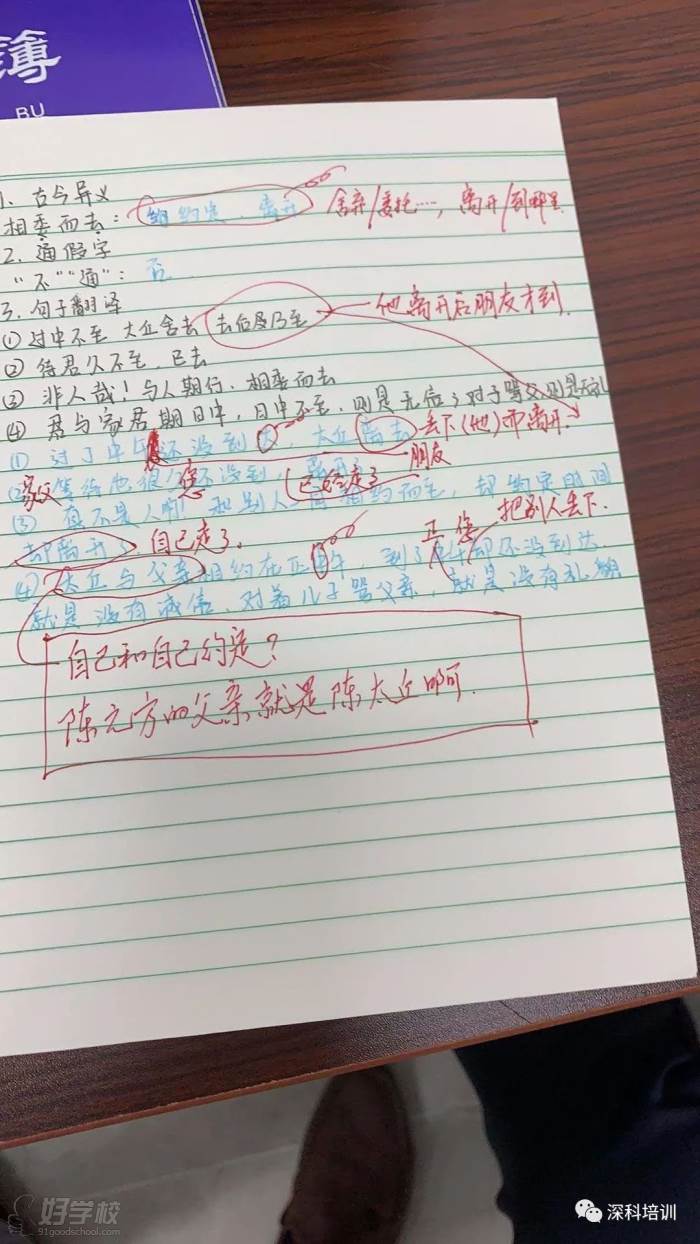 簿
BU
1、古今异义
相委而去：约定、离开 舍弃/委托……，离开/到哪里
2、通假字
"不""通"：否
3、句子翻译
① 过中不至 太丘舍去 去后乃至 他离开后朋友才到.
② 待君久不至，已去
③ 非人哉！与人期行、相委而去
④ 君与家君期日中，日中不至，则是无信；对子骂父则是无礼
① 过了中午还没到 太丘离去 丢下(他)而离开.
朋友
②家父等待您很久还没到 已经走了
③ 真不是人啊 和别人 相约而至，却
却离开了 自己走了. 正 您 把别人丢下.
④ 太丘与父亲相约在正午，到了 却还没到达
就是没有诚信、对着儿子骂父亲，就是没有礼貌
自己和自己约定？
陈元方的父亲就是陈太丘啊.
好学校
91goodschool.com
深科培训